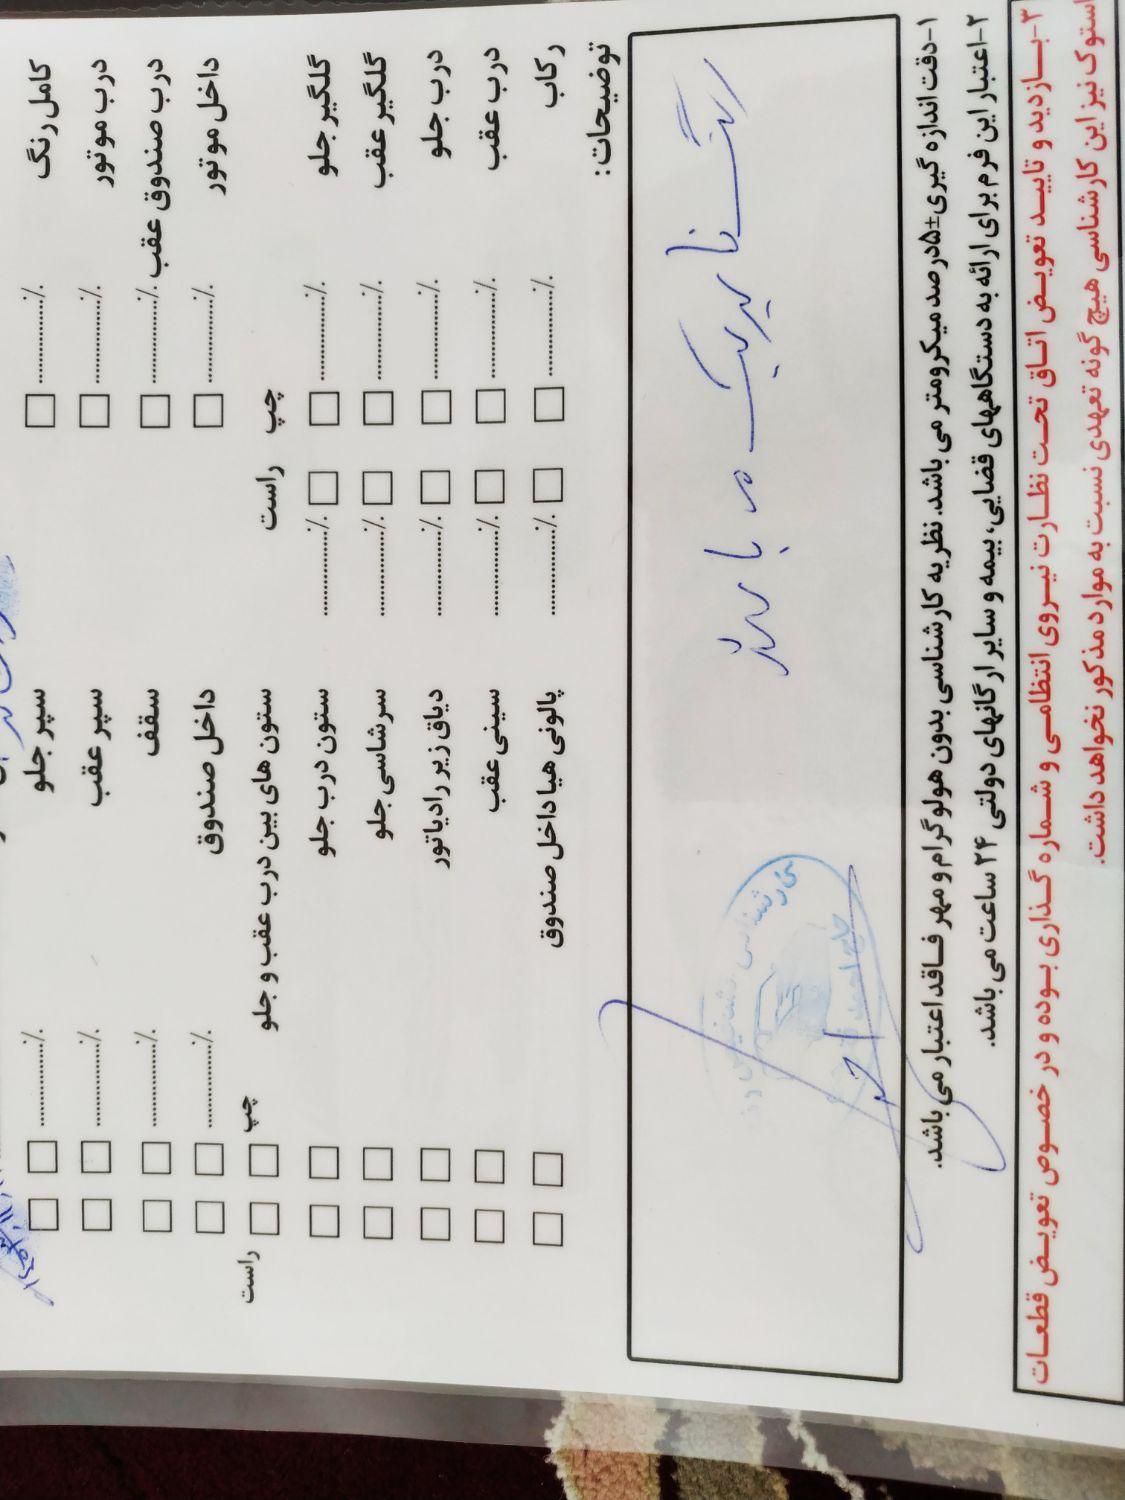 کامل رنگ ٪.............. □ سپر جلو ٪.............. □ □
درب موتور ٪.............. □ سپر عقب ٪.............. □ □
درب صندوق عقب ٪.............. □ سقف ٪.............. □ □
داخل موتور ٪.............. □ داخل صندوق ٪.............. □ □
چپ راست ستون های بین درب عقب و جلو چپ □ □ راست
گلگیر جلو ٪.............. □ □ ٪.............. ستون درب جلو □ □
گلگیر عقب ٪.............. □ □ ٪.............. سرشاسی جلو □ □
درب جلو ٪.............. □ □ ٪.............. دیاق زیر رادیاتور □ □
درب عقب ٪.............. □ □ ٪.............. سینی عقب □ □
رکاب ٪.............. □ □ ٪.............. پالونی هیا داخل صندوق □ □
توضیحات:
رنگ فابریک
۱-دقت اندازه گیری±۵درصد میکرومتر می باشد. نظریه کارشناسی بدون هولوگرام و مهر فاقد اعتبار می باشد.
۲-اعتبار این فرم برای ارائه به دستگاههای قضایی، بیمه و سایر ارگانهای دولتی ۲۴ ساعت می باشد.
۳-بازدید و تایید تعویض اتاق تحت نظارت نیروی انتظامی و شماره گذاری بوده و در خصوص تعویض قطعات
استوک نیز این کارشناسی هیچ گونه تعهدی نسبت به موارد مذکور نخواهد داشت.